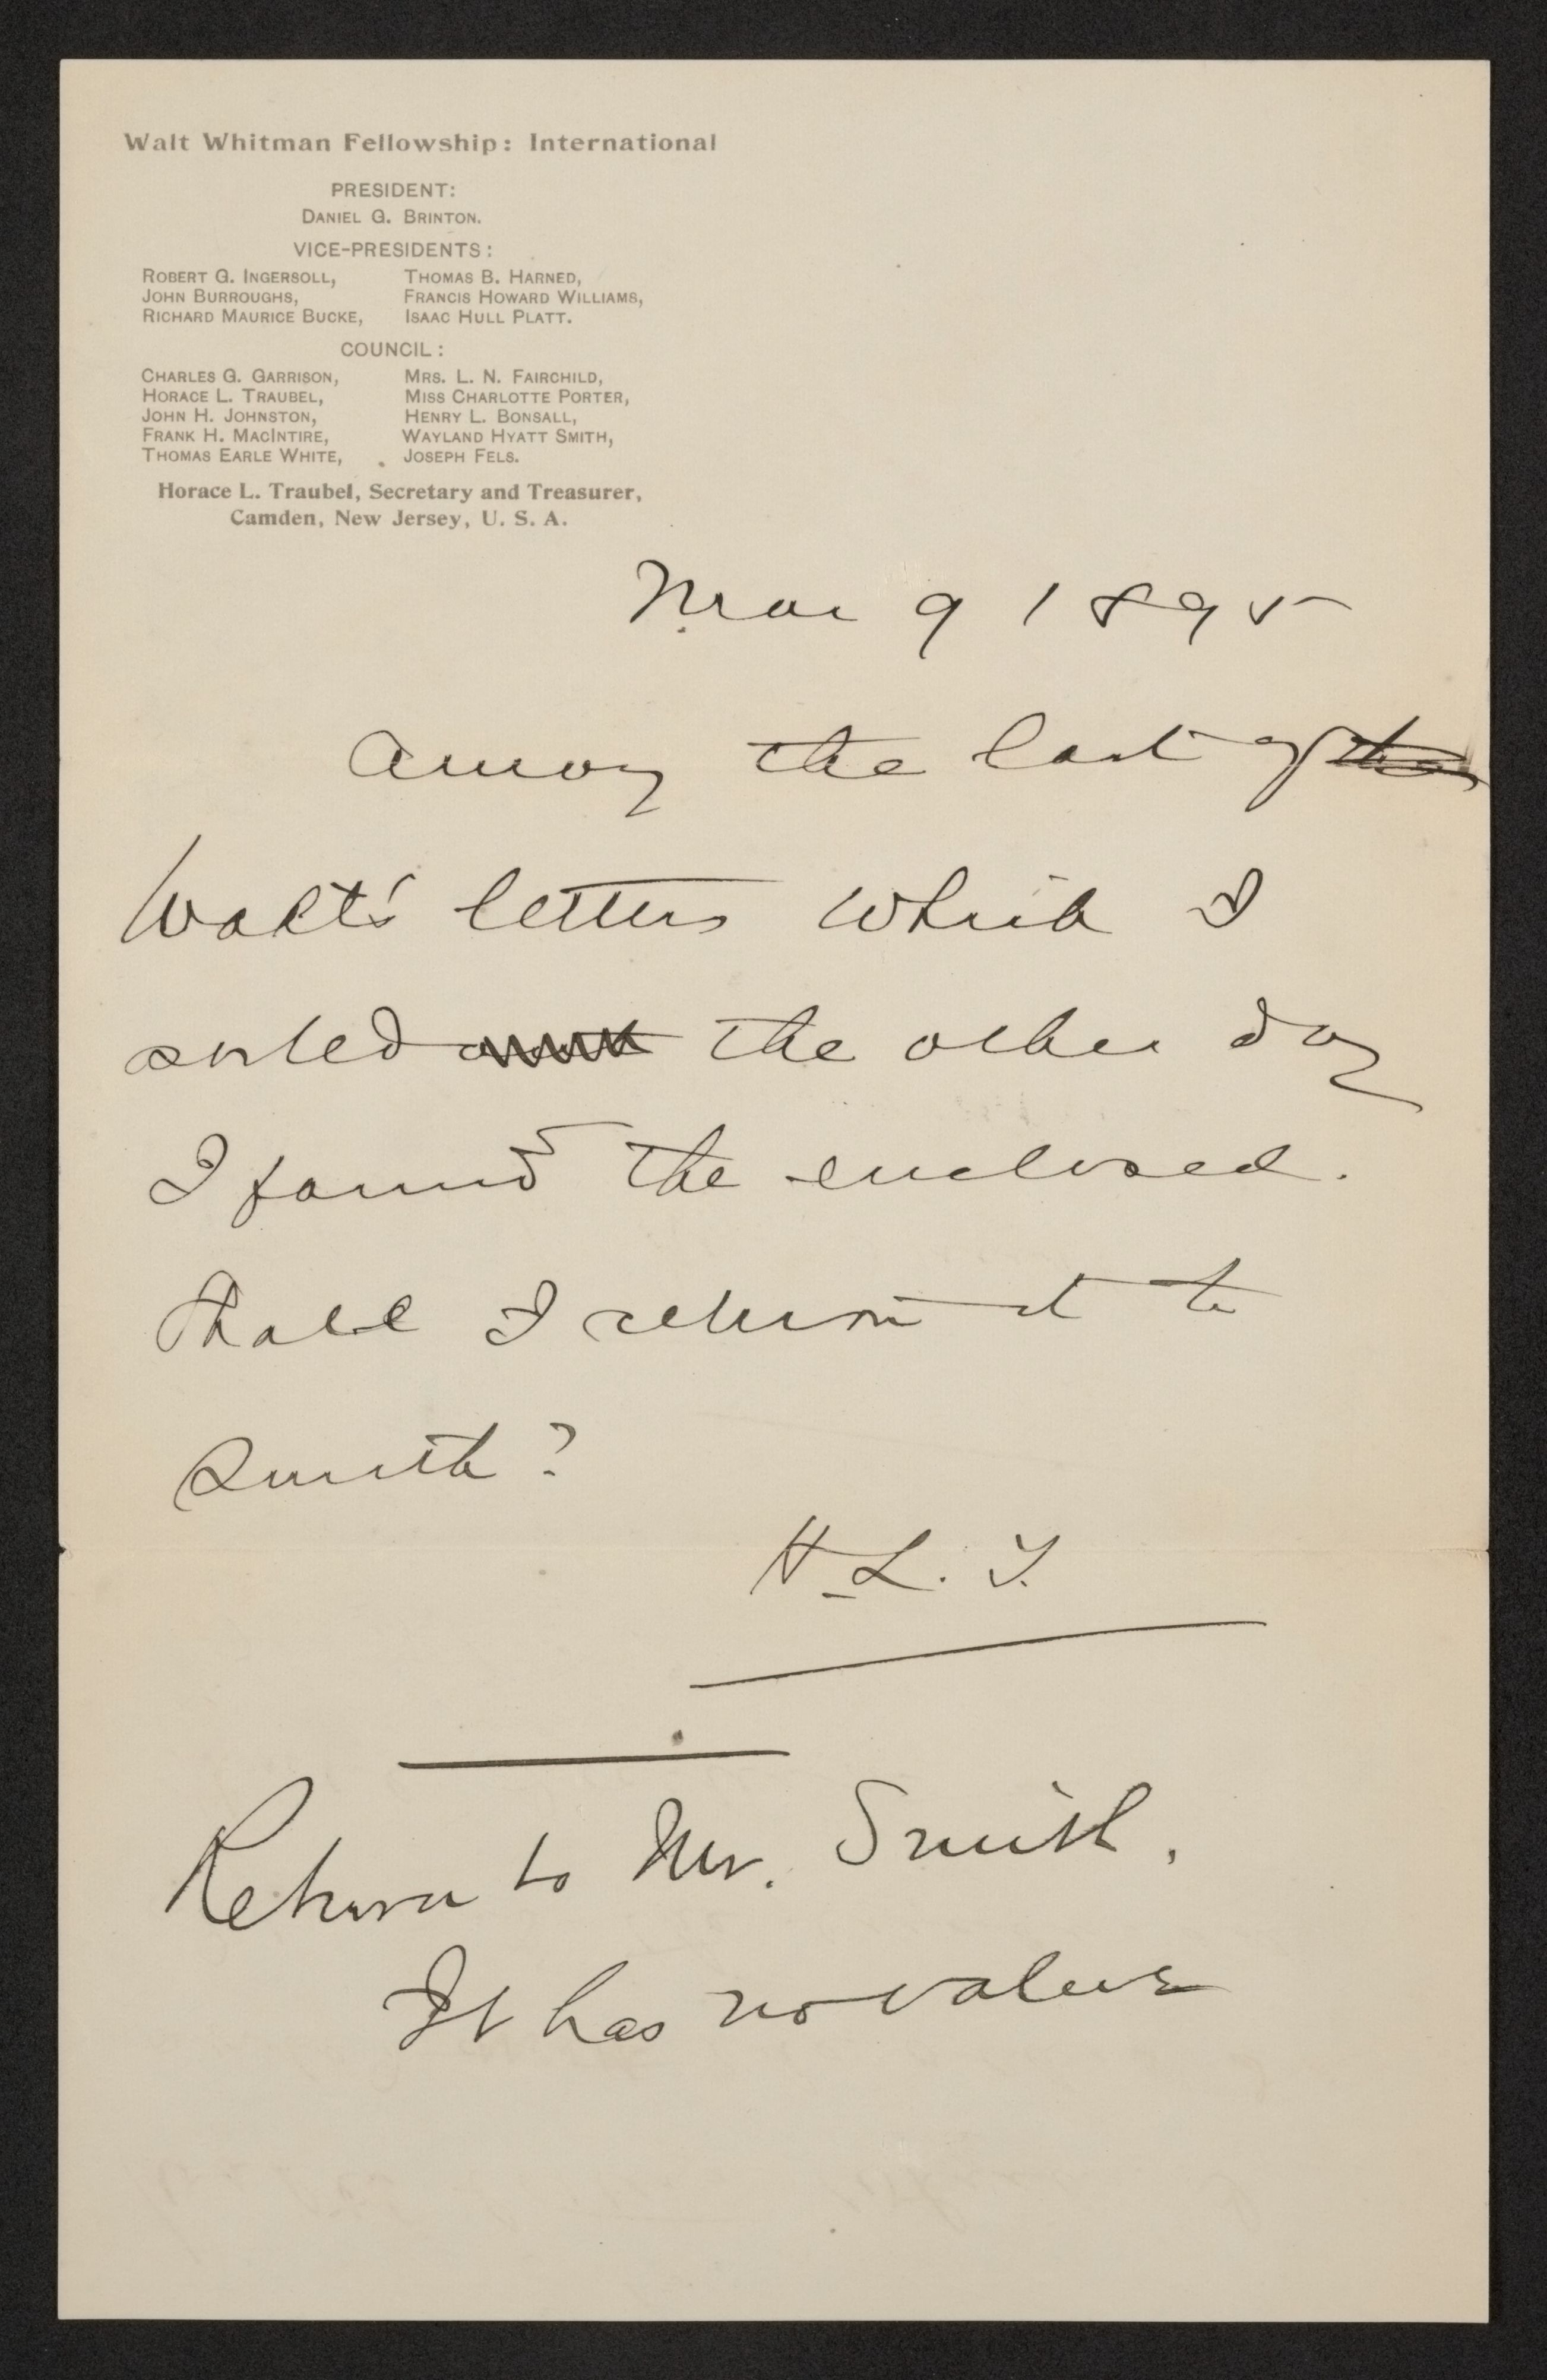 Walt Whitman Fellowship: International
PRESIDENT:
DANIEL G. BRINTON.
VICE-PRESIDENTS:
ROBERT G. INGERSOLL, THOMAS B. HARNED,
JOHN BURROUGHS, FRANCIS HOWARD WILLIAMS,
RICHARD MAURICE BUCKE, ISAAC HULL PLATT.
COUNCIL:
CHARLES G. GARRISON, MRS. L. N. FAIRCHILD,
HORACE L. TRAUBEL, MISS CHARLOTTE PORTER,
JOHN H. JOHNSTON, HENRY L. BONSALL,
FRANK H. MACINTIRE, WAYLAND HYATT SMITH,
THOMAS EARLE WHITE, JOSEPH FELS.
Horace L. Traubel, Secretary and Treasurer,
Camden, New Jersey, U. S. A.
Mar 9 1895
Among the last of
Walt's letters which I
sorted the other day
I found the enclosed.
Shall I return it to
Smith?
H. L. T.
Return to Mr. Smith.
It has no value